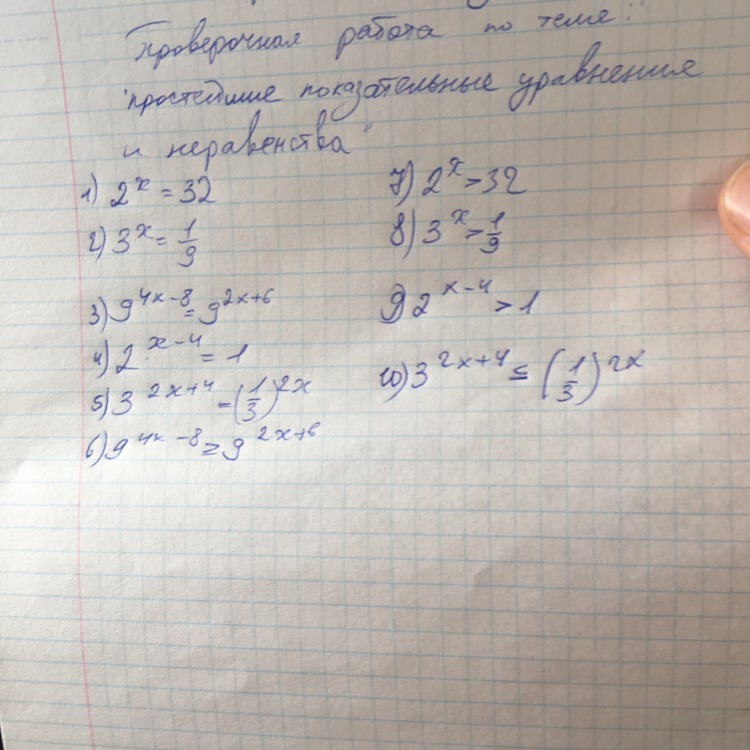 Проверочная работа по теме:
"простейшие показательные уравнения
и неравенства"
1) 2^x = 32
2) 3^x = 1/9
3) 9^{4x-8} = 9^{2x+6}
4) 2^{x-4} = 1
5) 3^{2x+4} = (1/3)^{2x}
6) 9^{4x-8} ≥ 9^{2x+6}
7) 2^x > 32
8) 3^x > 1/9
9) 2^{x-4} > 1
10) 3^{2x+4} ≤ (1/3)^{2x}